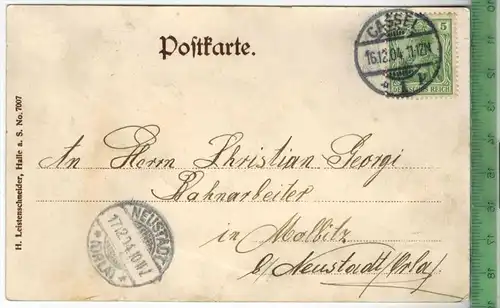 Postkarte.
CASSEL
16.12.04 11-12V.
5
DEUTSCHES REICH
An Herrn Christian Georgi
Bahnarbeiter
in Molbitz
b/Neustadt/Orla)
NEUSTADT
17.12.04.10
(ORLA)
H. Leistenschneider, Halle a. S. No. 7007